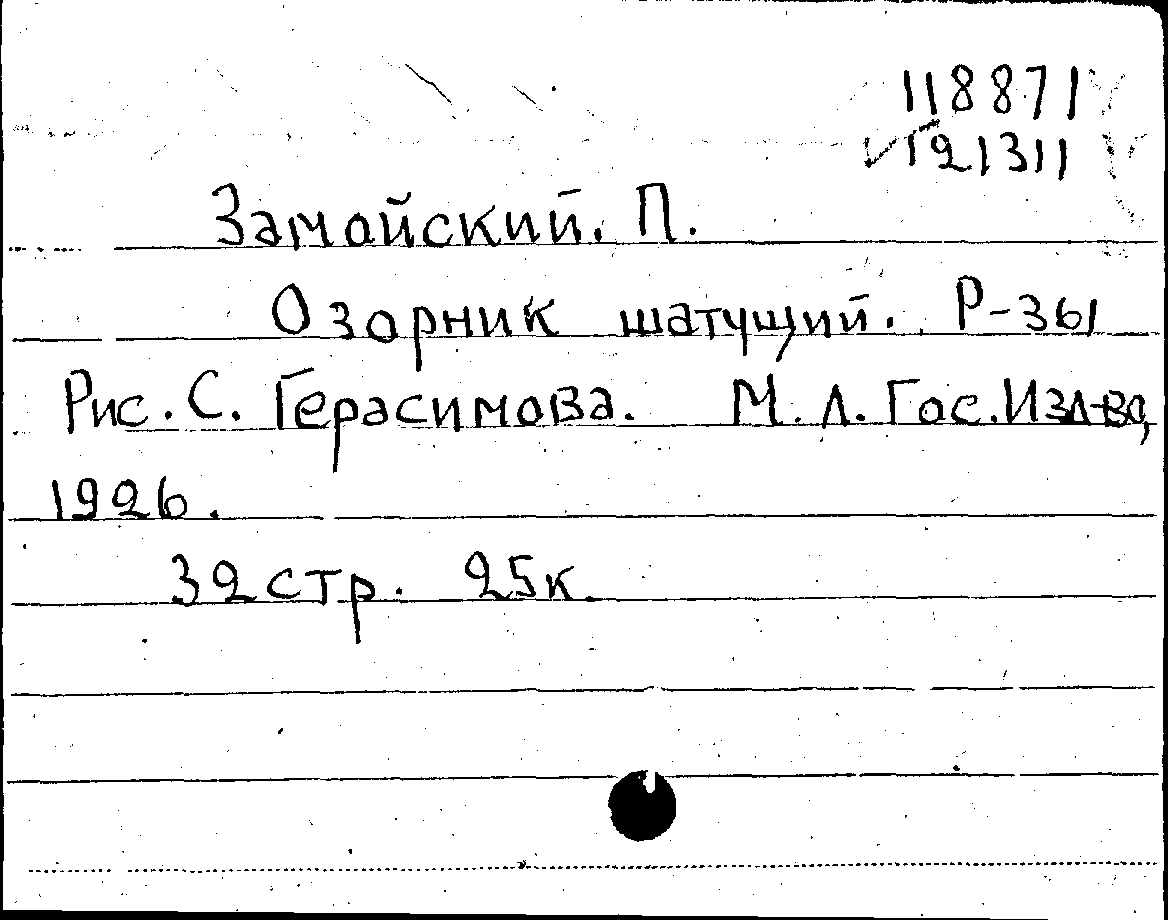 118871
121311
Замойский. П.
Озорник шатущий. Р-361
Рис. С. Герасимова. М. Л. Гос. Изд-во,
1926.
32 стр. 25к.